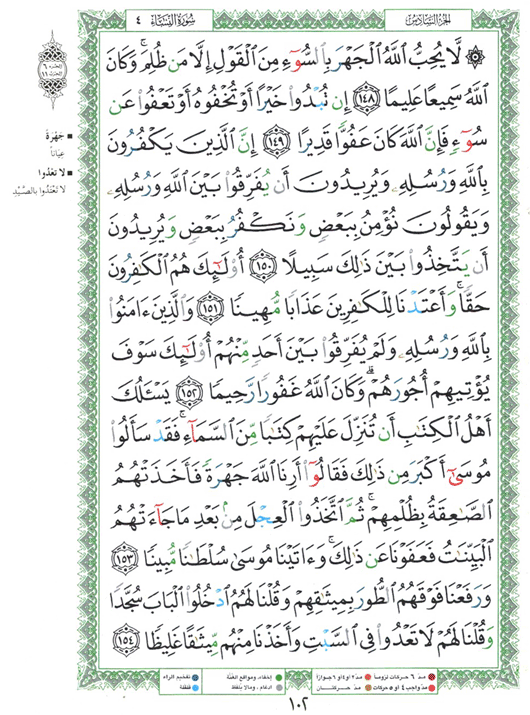 الجزء السادس
سورة النساء
٤
۞ لَّا يُحِبُّ ٱللَّهُ ٱلْجَهْرَ بِٱلسُّوٓءِ مِنَ ٱلْقَوْلِ إِلَّا مَن ظُلِمَ ۚ وَكَانَ
ٱللَّهُ سَمِيعًا عَلِيمًا ١٤٨ إِن تُبْدُوا۟ خَيْرًا أَوْ تُخْفُوهُ أَوْ تَعْفُوا۟ عَن
سُوٓءٍ فَإِنَّ ٱللَّهَ كَانَ عَفُوًّا قَدِيرًا ١٤٩ إِنَّ ٱلَّذِينَ يَكْفُرُونَ
بِٱللَّهِ وَرُسُلِهِۦ وَيُرِيدُونَ أَن يُفَرِّقُوا۟ بَيْنَ ٱللَّهِ وَرُسُلِهِۦ
وَيَقُولُونَ نُؤْمِنُ بِبَعْضٍ وَنَكْفُرُ بِبَعْضٍ وَيُرِيدُونَ
أَن يَتَّخِذُوا۟ بَيْنَ ذَٰلِكَ سَبِيلًا ١٥٠ أُو۟لَٰٓئِكَ هُمُ ٱلْكَٰفِرُونَ
حَقًّا ۚ وَأَعْتَدْنَا لِلْكَٰفِرِينَ عَذَابًا مُّهِينًا ١٥١ وَٱلَّذِينَ ءَامَنُوا۟
بِٱللَّهِ وَرُسُلِهِۦ وَلَمْ يُفَرِّقُوا۟ بَيْنَ أَحَدٍ مِّنْهُمْ أُو۟لَٰٓئِكَ سَوْفَ
يُؤْتِيهِمْ أُجُورَهُمْ ۗ وَكَانَ ٱللَّهُ غَفُورًا رَّحِيمًا ١٥٢ يَسْـَٔلُكَ
أَهْلُ ٱلْكِتَٰبِ أَن تُنَزِّلَ عَلَيْهِمْ كِتَٰبًا مِّنَ ٱلسَّمَآءِ ۚ فَقَدْ سَأَلُوا۟
مُوسَىٰٓ أَكْبَرَ مِن ذَٰلِكَ فَقَالُوٓا۟ أَرِنَا ٱللَّهَ جَهْرَةً فَأَخَذَتْهُمُ
ٱلصَّٰعِقَةُ بِظُلْمِهِمْ ۚ ثُمَّ ٱتَّخَذُوا۟ ٱلْعِجْلَ مِنۢ بَعْدِ مَا جَآءَتْهُمُ
ٱلْبَيِّنَٰتُ فَعَفَوْنَا عَن ذَٰلِكَ ۚ وَءَاتَيْنَا مُوسَىٰ سُلْطَٰنًا مُّبِينًا ١٥٣
وَرَفَعْنَا فَوْقَهُمُ ٱلطُّورَ بِمِيثَٰقِهِمْ وَقُلْنَا لَهُمُ ٱدْخُلُوا۟ ٱلْبَابَ سُجَّدًا
وَقُلْنَا لَهُمْ لَا تَعْدُوا۟ فِى ٱلسَّبْتِ وَأَخَذْنَا مِنْهُم مِّيثَٰقًا غَلِيظًا ١٥٤
■ جَهْرَةً
عِيَاناً
■ لا تَعْدُوا
لا تَعْتَدُوا بالصَّيْدِ
مد ٦ حركات لزوماً
مد ٢ أو ٤ أو ٦ جوازاً
إخفاء، ومواقع الغنّة
تفخيم الراء
مد واجب ٤ أو ٥ حركات
مد حركتان
إدغام، وما لا يلفظ
قلقلة
١٠٢